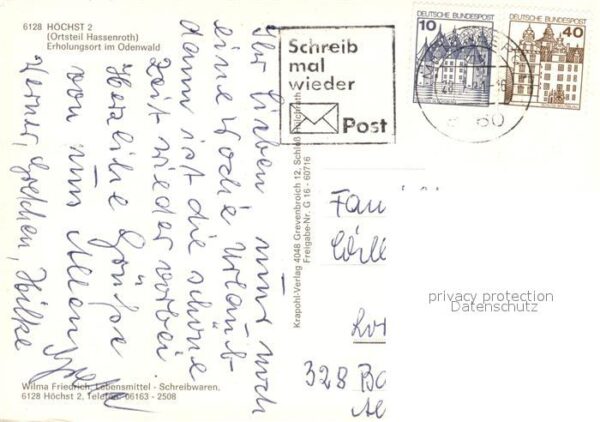 6128 HÖCHST 2
(Ortsteil Hassenroth)
Erholungsort im Odenwald
Ihr Lieben nur noch
eine Woche Urlaub
dann ist die schöne
Zeit wieder vorbei.
Herzliche Grüße
von uns Allen
Werner, Gretchen, Hilke
Wilma Friedrich, Lebensmittel - Schreibwaren,
6128 Höchst 2, Telefon 06163 - 2508
Krapohl-Verlag 4048 Grevenbroich 12, Schloß Hülchrath
Freigabe-Nr. G 16 - 60716
Schreib
mal
wieder
Post
DEUTSCHE BUNDESPOST
10
DEUTSCHE BUNDESPOST
40
60
Fam
328 Ba
privacy protection
Datenschutz